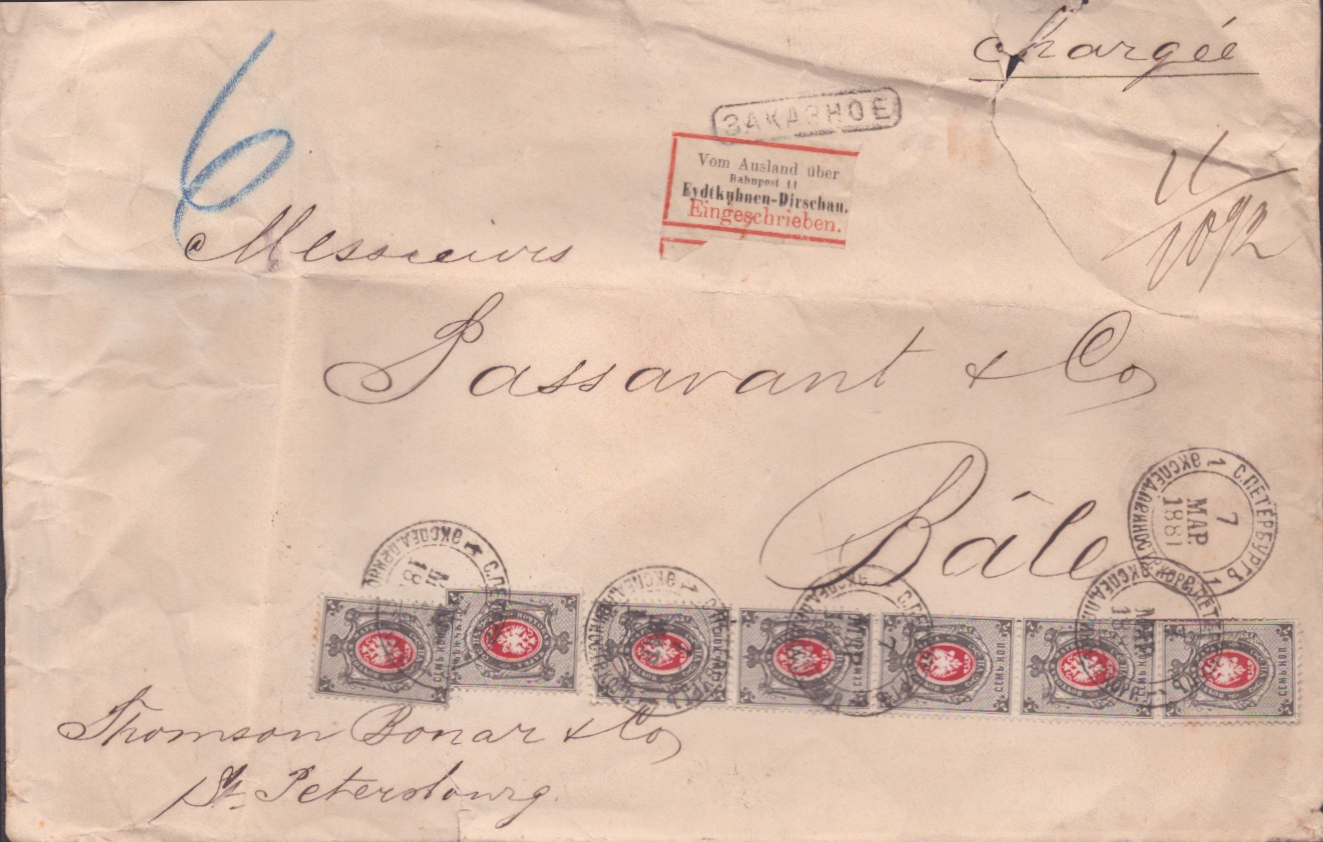 chargée
6
ЗАКАЗНОЕ
Vom Ausland über
Bahnpost 11
Eydtkuhnen-Dirschau.
Eingeschrieben.
11
1092
Messieurs
Passavant & Co
Bâle
С.ПЕТЕРБУРГЪ 1 ЭКСПЕД.
7
МАР
1881
СЕМЬ КОП.
СЕМЬ КОП.
СЕМЬ КОП.
СЕМЬ КОП.
СЕМЬ КОП.
Thomson Bonar & Co
St. Petersbourg.